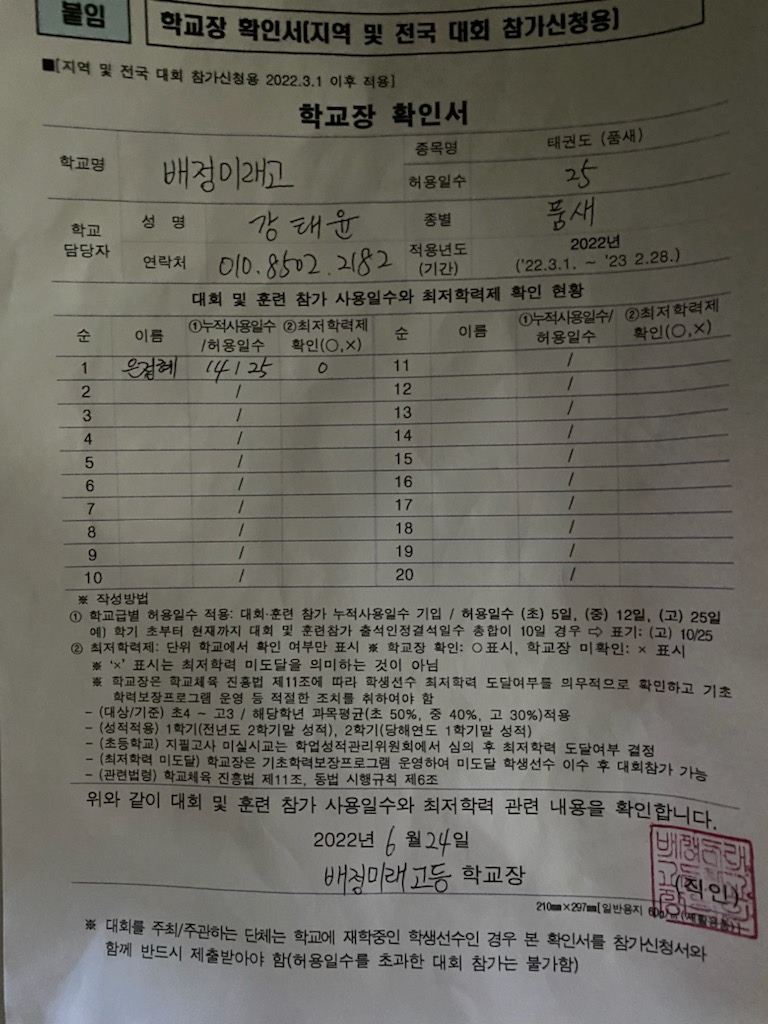 붙임
학교장 확인서(지역 및 전국 대회 참가신청용)
■[지역 및 전국 대회 참가신청용 2022.3.1 이후 적용]
학교장 확인서
학교명 배정미래고 종목명 태권도 (품새)
허용일수 25
학교 담당자 성 명 강태윤 종별 품새
연락처 010.8502.2182 적용년도 (기간) 2022년 ('22.3.1. ~ '23 2.28.)
대회 및 훈련 참가 사용일수와 최저학력제 확인 현황
순 이름 ①누적사용일수/허용일수 ②최저학력제 확인(○,×) 순 이름 ①누적사용일수/허용일수 ②최저학력제 확인(○,×)
1 은겸혜 14 / 25 0 11 /
2 / 12 /
3 / 13 /
4 / 14 /
5 / 15 /
6 / 16 /
7 / 17 /
8 / 18 /
9 / 19 /
10 / 20 /
※ 작성방법
① 학교급별 허용일수 적용: 대회·훈련 참가 누적사용일수 기입 / 허용일수 (초) 5일, (중) 12일, (고) 25일
예) 학기 초부터 현재까지 대회 및 훈련참가 출석인정결석일수 총합이 10일 경우 ⇨ 표기: (고) 10/25
② 최저학력제: 단위 학교에서 확인 여부만 표시 ※ 학교장 확인: ○표시, 학교장 미확인: × 표시
※ '×' 표시는 최저학력 미도달을 의미하는 것이 아님
※ 학교장은 학교체육 진흥법 제11조에 따라 학생선수 최저학력 도달여부를 의무적으로 확인하고 기초
학력보장프로그램 운영 등 적절한 조치를 취하여야 함
- (대상/기준) 초4 ~ 고3 / 해당학년 과목평균(초 50%, 중 40%, 고 30%)적용
- (성적적용) 1학기(전년도 2학기말 성적), 2학기(당해연도 1학기말 성적)
- (초등학교) 지필고사 미실시교는 학업성적관리위원회에서 심의 후 최저학력 도달여부 결정
- (최저학력 미도달) 학교장은 기초학력보장프로그램 운영하여 미도달 학생선수 이수 후 대회참가 가능
- (관련법령) 학교체육 진흥법 제11조, 동법 시행규칙 제6조
위와 같이 대회 및 훈련 참가 사용일수와 최저학력 관련 내용을 확인합니다.
2022년 6 월 24일
배정미래고등 학교장 (직인)
210㎜×297㎜[일반용지 60g/㎡(재활용품)]
※ 대회를 주최/주관하는 단체는 학교에 재학중인 학생선수인 경우 본 확인서를 참가신청서와
함께 반드시 제출받아야 함(허용일수를 초과한 대회 참가는 불가함)